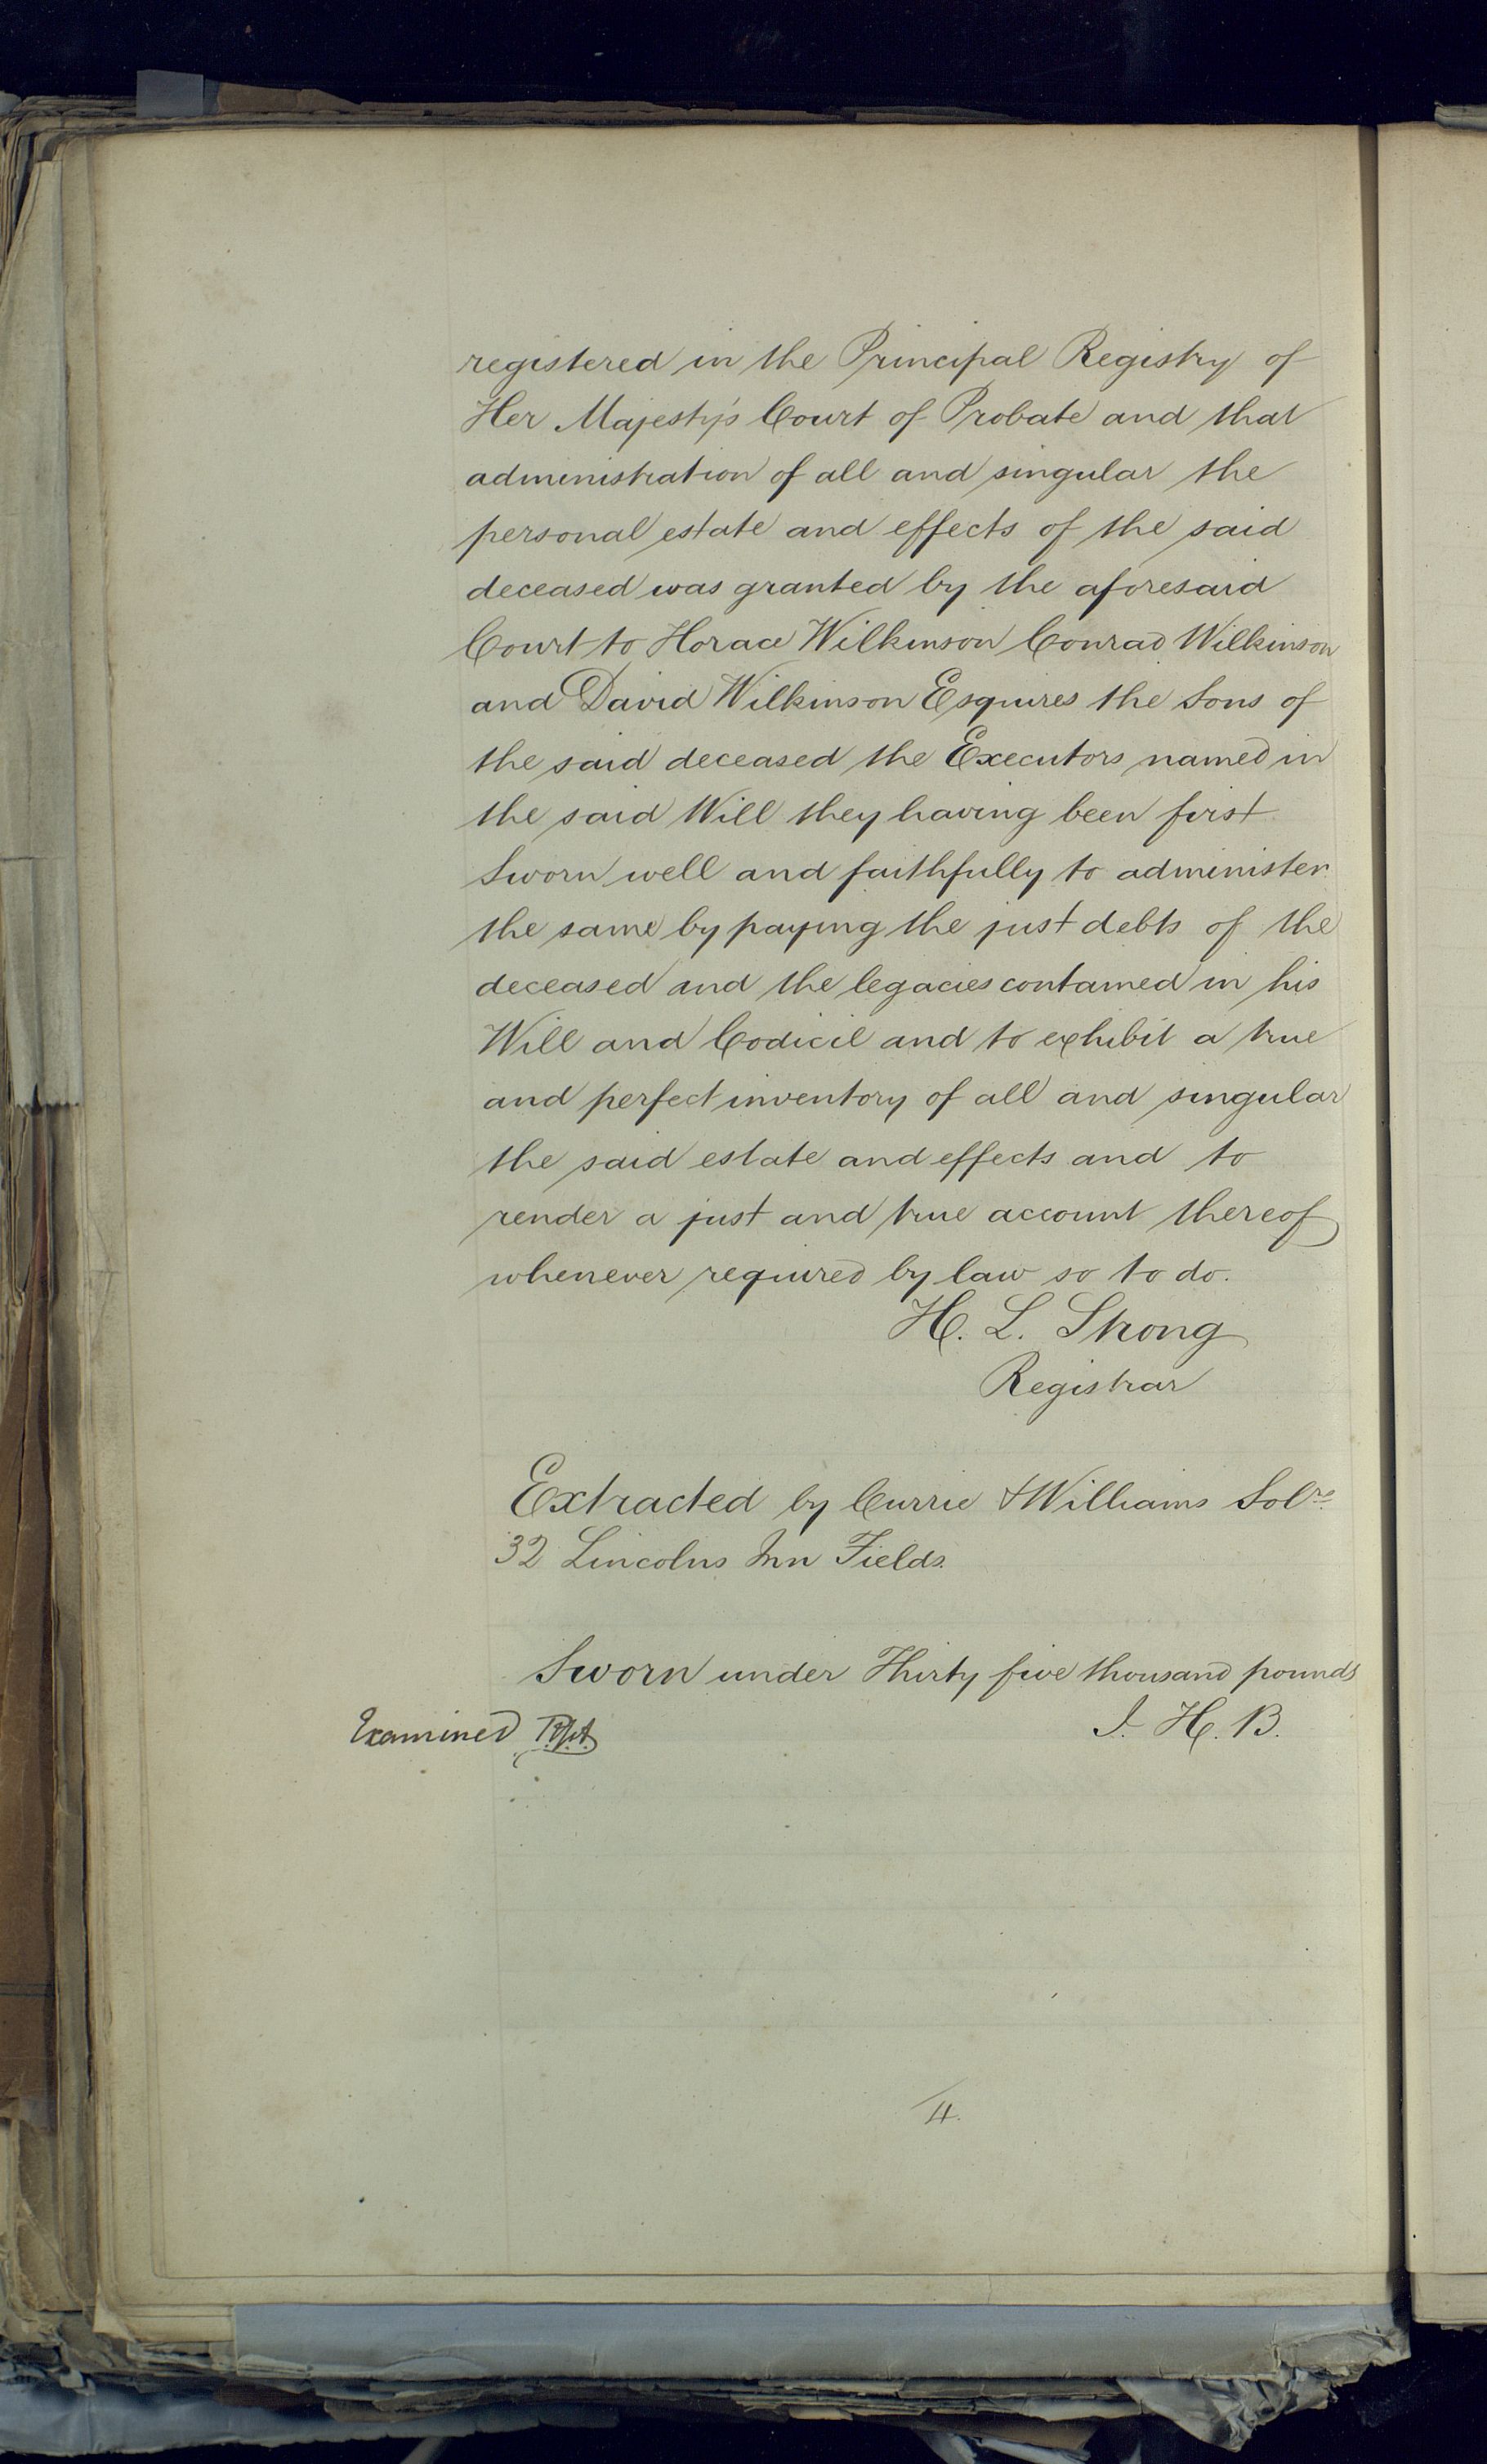 registered in the Principal Registry of
Her Majesty's Court of Probate and that
administration of all and singular the
personal estate and effects of the said
deceased was granted by the aforesaid
Court to Horace Wilkinson Conrad Wilkinson
and David Wilkinson Esquires the Sons of
the said deceased the Executors named in
the said Will they having been first
Sworn well and faithfully to administer
the same by paying the just debts of the
deceased and the legacies contained in his
Will and Codicil and to exhibit a true
and perfect inventory of all and singular
the said estate and effects and to
render a just and true account thereof
whenever required by law so to do.
H. L. Strong
Registrar
Extracted by Currie & Williams Solrs
32 Lincolns Inn Fields.
Sworn under Thirty five thousand pounds
J. H. B.
Examined
4.